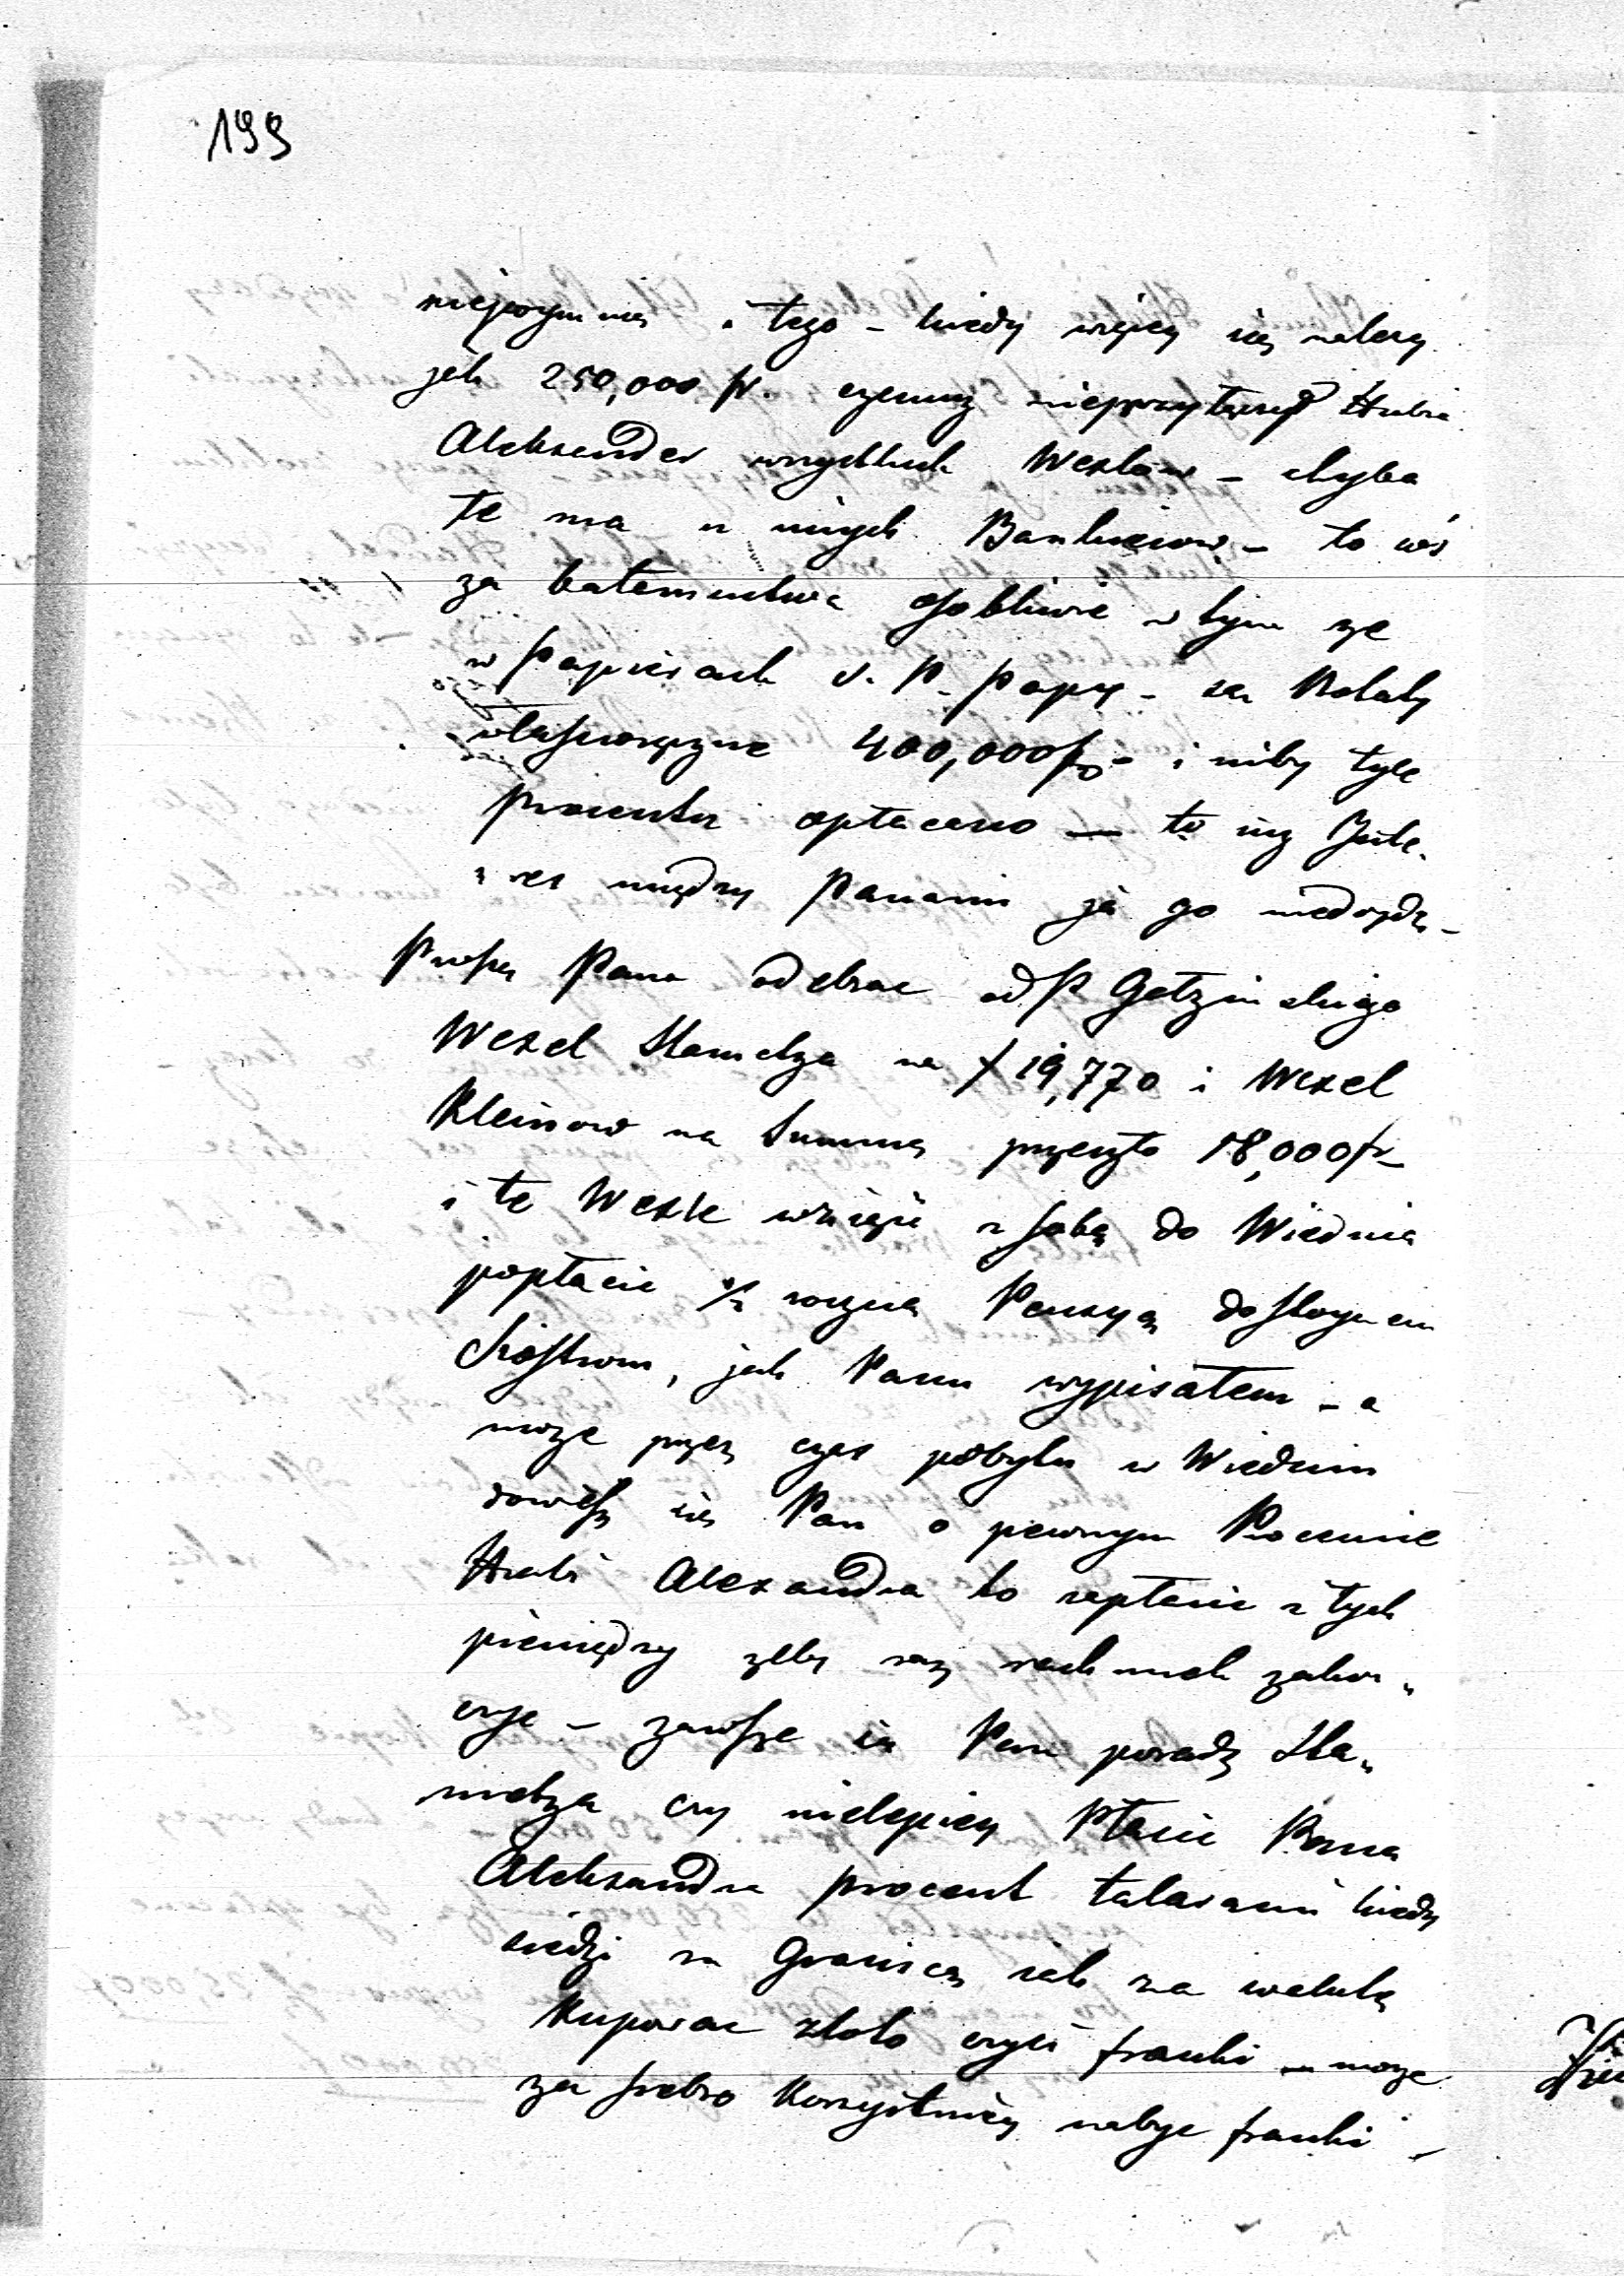 199
niepoymuię i tego – kiedy więcey się należy
jak 250,000 fr. czemuz nieprzyłączył Hrabia
Aleksander wszystkich Wexlow – chyba
te ma u innych Bankierow – to coś
za batamutwa osobliwie w tym ze
w Papierach s. P. Papy – są Kwity
własnoręczne 400,000 fr – i niby tyle
procentu opłacano – to iuz Inte-
res między Panami ja go niedoydę –
Proszę Pana odebrac od P Getzinskiego
Wexel Stametza na f 19,770 i Wexel
Kleinow na Summę przeszło 18,000 fr
i te Wexle wziąść z sobą do Wiednia
popłacić 1/2 roczną Pensyą dostoynem
Siostrom, jak Panu wypisałem – a
moze przez czas pobytu w Wiedniu
dowiesz się Pan o pewnym Procencie
Hrabi Alexandra to zapłacić z tych
pieniędzy zeby raz rachunek zakon-
czyc – zawsze się Pan poradz Sta-
metza czy nielepiey Płacić Pana
Aleksandra procent talarami kiedy
siedzi za Granicą jak za walutę
Kupowac złoto czyli franki – moze
za srebro korzystniey nabyc franki –